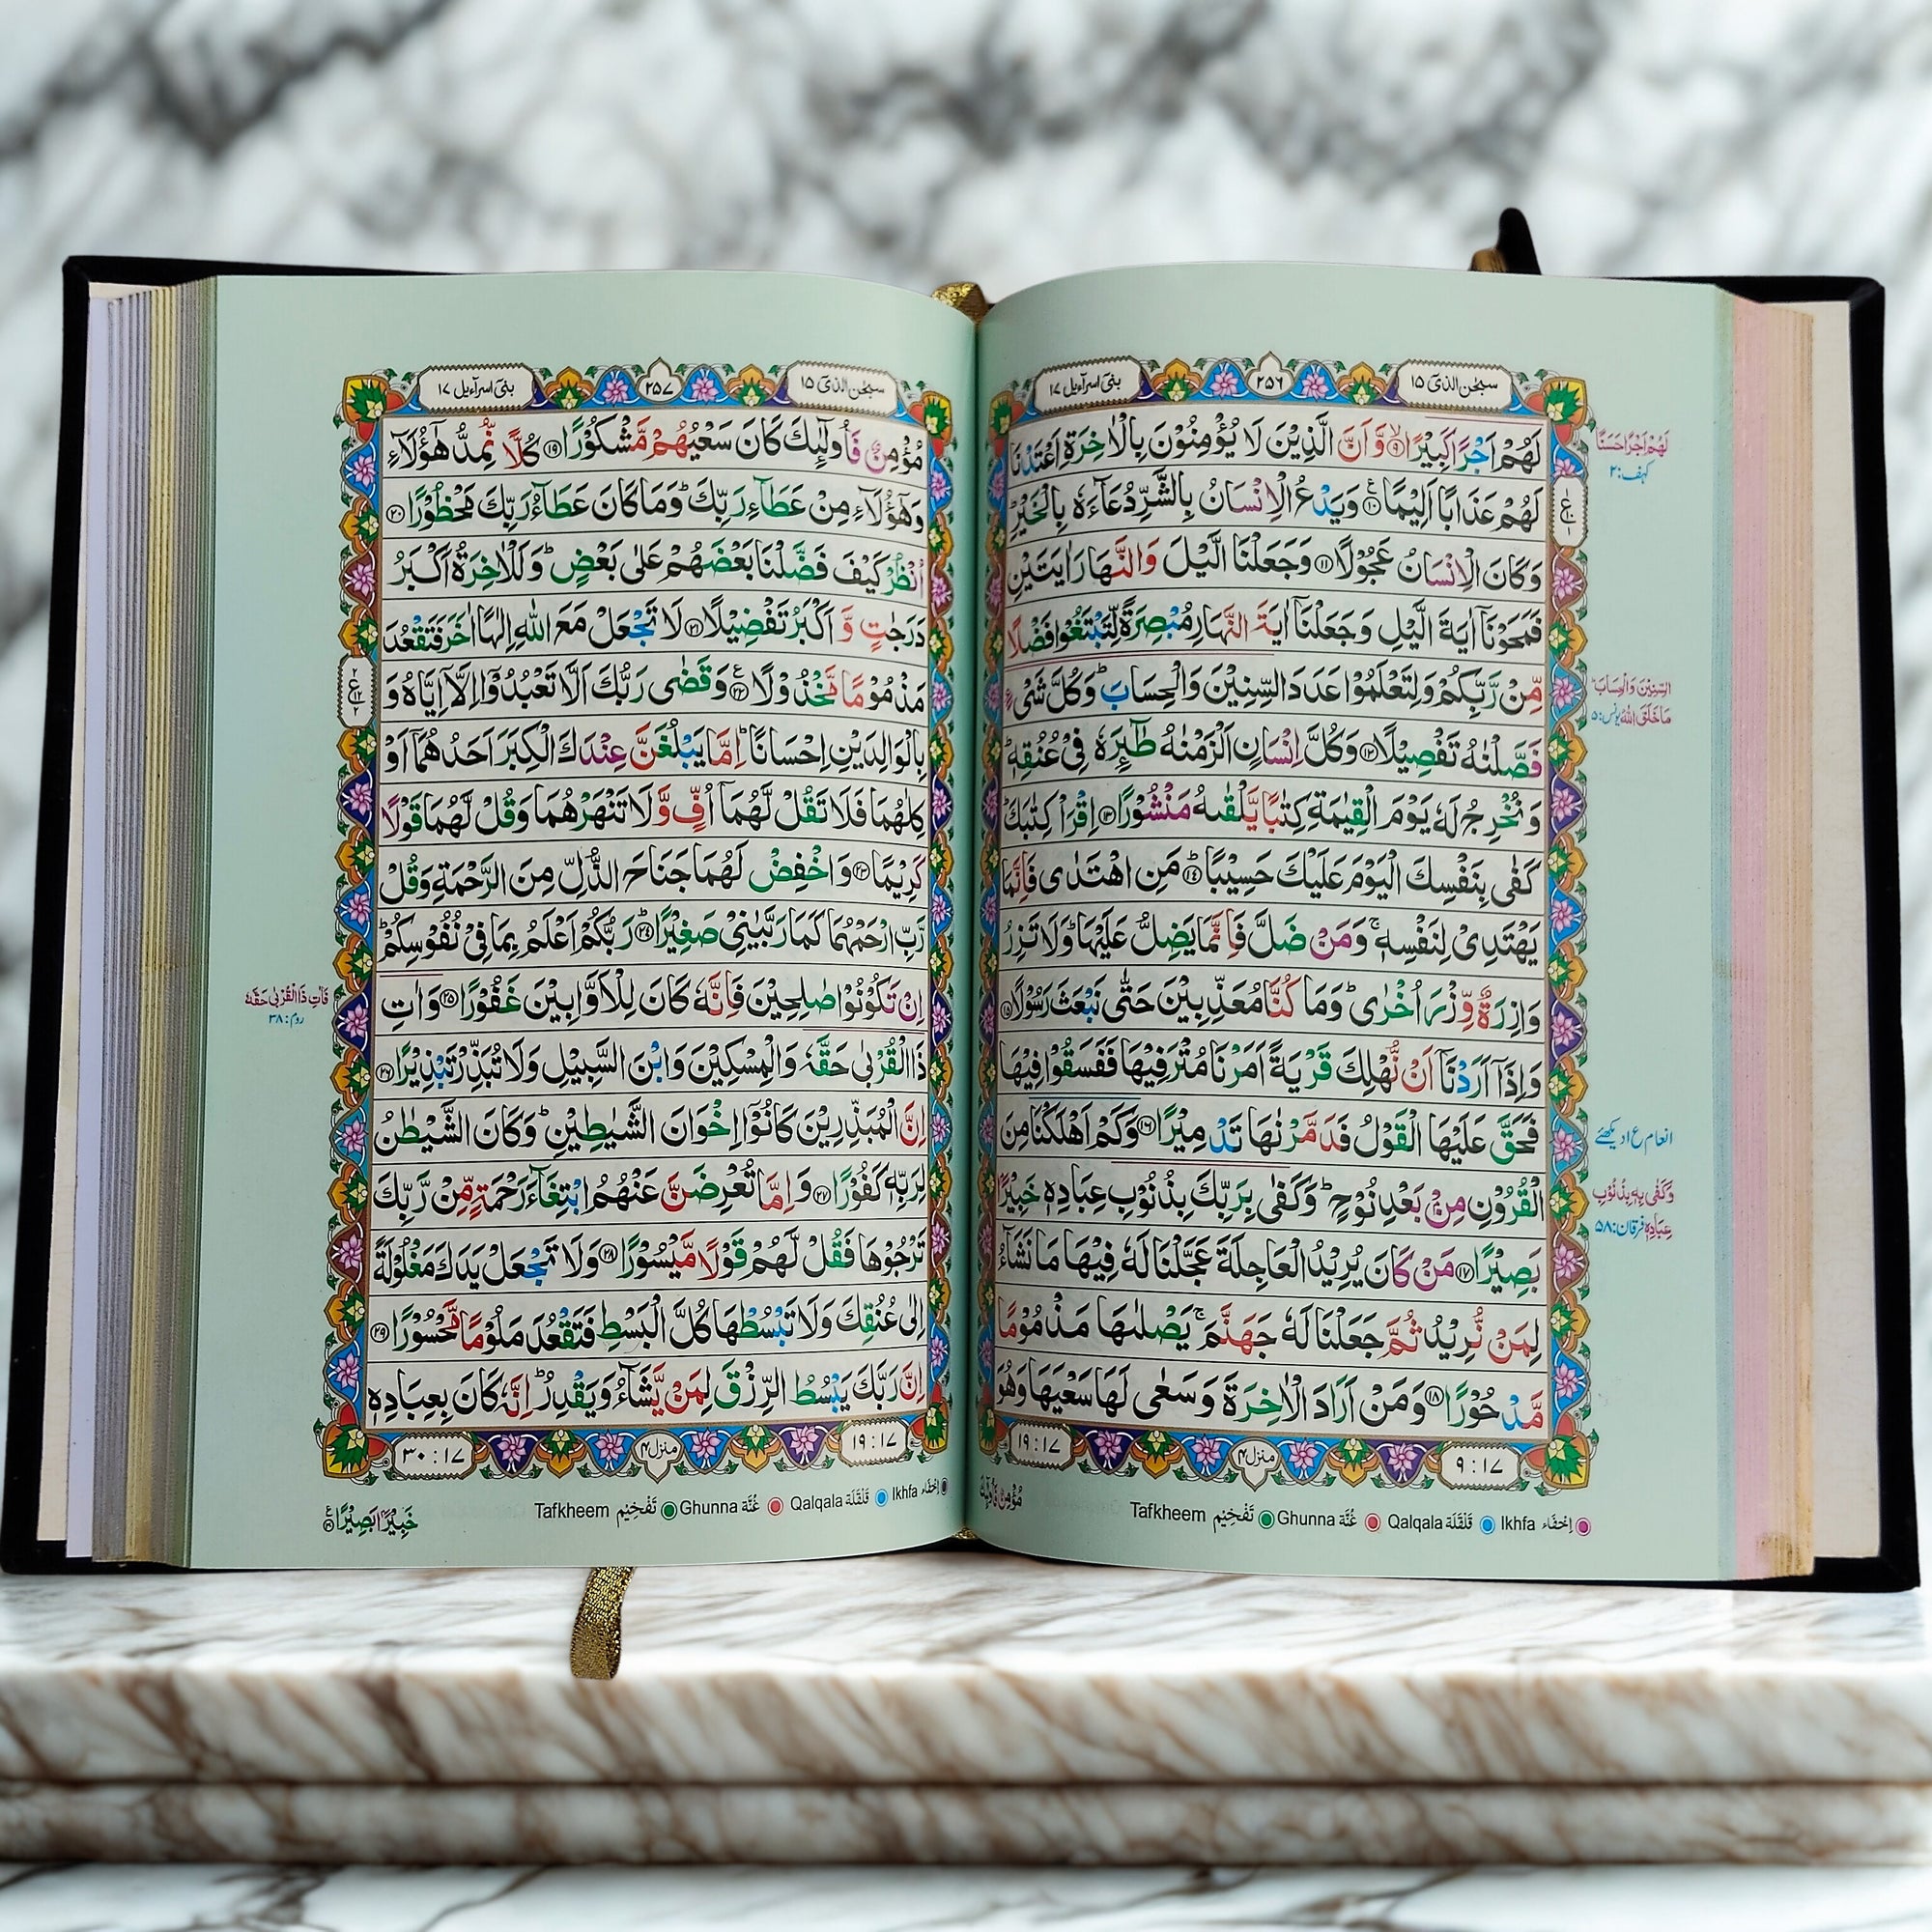 سبحٰن الذیۤ ۱۵
۲۵۶
بنیۤ اسرآءیل ۱۷
لَهُمْ اَجْرًا كَبِیْرًا ۙ۹ وَّ اَنَّ الَّذِیْنَ لَا یُؤْمِنُوْنَ بِالْاٰخِرَةِ اَعْتَدْنَا
لَهُمْ عَذَابًا اَلِیْمًا ۠۱۰ وَیَدْعُ الْاِنْسَانُ بِالشَّرِّ دُعَآءَهٗ بِالْخَیْرِ ؕ
وَكَانَ الْاِنْسَانُ عَجُوْلًا ۱۱ وَجَعَلْنَا الَّیْلَ وَالنَّهَارَ اٰیَتَیْنِ
فَمَحَوْنَاۤ اٰیَةَ الَّیْلِ وَجَعَلْنَاۤ اٰیَةَ النَّهَارِ مُبْصِرَةً لِّتَبْتَغُوْا فَضْلًا
مِّنْ رَّبِّكُمْ وَلِتَعْلَمُوْا عَدَدَ السِّنِیْنَ وَالْحِسَابَ ؕ وَكُلَّ شَیْءٍ
فَصَّلْنٰهُ تَفْصِیْلًا ۱۲ وَكُلَّ اِنْسَانٍ اَلْزَمْنٰهُ طٰٓئِرَهٗ فِیْ عُنُقِهٖ ؕ
وَنُخْرِجُ لَهٗ یَوْمَ الْقِیٰمَةِ كِتٰبًا یَّلْقٰىهُ مَنْشُوْرًا ۱۳ اِقْرَاْ كِتٰبَكَ ؕ
كَفٰی بِنَفْسِكَ الْیَوْمَ عَلَیْكَ حَسِیْبًا ؕ۱۴ مَنِ اهْتَدٰی فَاِنَّمَا
یَهْتَدِیْ لِنَفْسِهٖ ۚ وَمَنْ ضَلَّ فَاِنَّمَا یَضِلُّ عَلَیْهَا ؕ وَلَا تَزِرُ
وَازِرَةٌ وِّزْرَ اُخْرٰی ؕ وَمَا كُنَّا مُعَذِّبِیْنَ حَتّٰی نَبْعَثَ رَسُوْلًا ۱۵
وَاِذَاۤ اَرَدْنَاۤ اَنْ نُّهْلِكَ قَرْیَةً اَمَرْنَا مُتْرَفِیْهَا فَفَسَقُوْا فِیْهَا
فَحَقَّ عَلَیْهَا الْقَوْلُ فَدَمَّرْنٰهَا تَدْمِیْرًا ۱۶ وَكَمْ اَهْلَكْنَا مِنَ
الْقُرُوْنِ مِنْۢ بَعْدِ نُوْحٍ ؕ وَكَفٰی بِرَبِّكَ بِذُنُوْبِ عِبَادِهٖ خَبِیْرًۢا
بَصِیْرًا ۱۷ مَنْ كَانَ یُرِیْدُ الْعَاجِلَةَ عَجَّلْنَا لَهٗ فِیْهَا مَا نَشَآءُ
لِمَنْ نُّرِیْدُ ثُمَّ جَعَلْنَا لَهٗ جَهَنَّمَ ۚ یَصْلٰىهَا مَذْمُوْمًا
مَّدْحُوْرًا ۱۸ وَمَنْ اَرَادَ الْاٰخِرَةَ وَسَعٰی لَهَا سَعْیَهَا وَهُوَ
۹ : ۱۷
منزل ۴
۱۹ : ۱۷
لَهُمْ اَجْرًا حَسَنًا
کہف: ۲
السِّنِیْنَ وَالْحِسَابَ ؕ
مَا خَلَقَ اللّٰهُ یونس: ۵
انعام ع ۱ دیکھئے
وَكَفٰی بِهٖ بِذُنُوْبِ
عِبَادِهٖ فرقان: ۵۸
اِخفَاء Ikhfa قَلْقَلَة Qalqala غُنَّة Ghunna تَفْخِیْم Tafkheem
سبحٰن الذیۤ ۱۵
۲۵۷
بنیۤ اسرآءیل ۱۷
مُؤْمِنٌ فَاُولٰٓئِكَ كَانَ سَعْیُهُمْ مَّشْكُوْرًا ۱۹ كُلًّا نُّمِدُّ هٰۤؤُلَآءِ
وَهٰۤؤُلَآءِ مِنْ عَطَآءِ رَبِّكَ ؕ وَمَا كَانَ عَطَآءُ رَبِّكَ مَحْظُوْرًا ۲۰
اُنْظُرْ كَیْفَ فَضَّلْنَا بَعْضَهُمْ عَلٰی بَعْضٍ ؕ وَلَلْاٰخِرَةُ اَكْبَرُ
دَرَجٰتٍ وَّ اَكْبَرُ تَفْضِیْلًا ۲۱ لَا تَجْعَلْ مَعَ اللّٰهِ اِلٰهًا اٰخَرَ فَتَقْعُدَ
مَذْمُوْمًا مَّخْذُوْلًا ۠۲۲ وَقَضٰی رَبُّكَ اَلَّا تَعْبُدُوْۤا اِلَّاۤ اِیَّاهُ وَ
بِالْوَالِدَیْنِ اِحْسَانًا ؕ اِمَّا یَبْلُغَنَّ عِنْدَكَ الْكِبَرَ اَحَدُهُمَاۤ اَوْ
كِلٰهُمَا فَلَا تَقُلْ لَّهُمَاۤ اُفٍّ وَّلَا تَنْهَرْهُمَا وَقُلْ لَّهُمَا قَوْلًا
كَرِیْمًا ۲۳ وَاخْفِضْ لَهُمَا جَنَاحَ الذُّلِّ مِنَ الرَّحْمَةِ وَقُلْ
رَّبِّ ارْحَمْهُمَا كَمَا رَبَّیٰنِیْ صَغِیْرًا ؕ۲۴ رَبُّكُمْ اَعْلَمُ بِمَا فِیْ نُفُوْسِكُمْ ؕ
اِنْ تَكُوْنُوْا صٰلِحِیْنَ فَاِنَّهٗ كَانَ لِلْاَوَّابِیْنَ غَفُوْرًا ۲۵ وَاٰتِ
ذَا الْقُرْبٰی حَقَّهٗ وَالْمِسْكِیْنَ وَابْنَ السَّبِیْلِ وَلَا تُبَذِّرْ تَبْذِیْرًا ۲۶
اِنَّ الْمُبَذِّرِیْنَ كَانُوْۤا اِخْوَانَ الشَّیٰطِیْنِ ؕ وَكَانَ الشَّیْطٰنُ
لِرَبِّهٖ كَفُوْرًا ۲۷ وَاِمَّا تُعْرِضَنَّ عَنْهُمُ ابْتِغَآءَ رَحْمَةٍ مِّنْ رَّبِّكَ
تَرْجُوْهَا فَقُلْ لَّهُمْ قَوْلًا مَّیْسُوْرًا ۲۸ وَلَا تَجْعَلْ یَدَكَ مَغْلُوْلَةً
اِلٰی عُنُقِكَ وَلَا تَبْسُطْهَا كُلَّ الْبَسْطِ فَتَقْعُدَ مَلُوْمًا مَّحْسُوْرًا ۲۹
اِنَّ رَبَّكَ یَبْسُطُ الرِّزْقَ لِمَنْ یَّشَآءُ وَیَقْدِرُ ؕ اِنَّهٗ كَانَ بِعِبَادِهٖ
۱۹ : ۱۷
منزل ۴
۳۰ : ۱۷
فَاٰتِ ذَا الْقُرْبٰی حَقَّهٗ
روم: ۳۸
اِخفَاء Ikhfa قَلْقَلَة Qalqala غُنَّة Ghunna تَفْخِیْم Tafkheem
خَبِیْرًۢا بَصِیْرًا